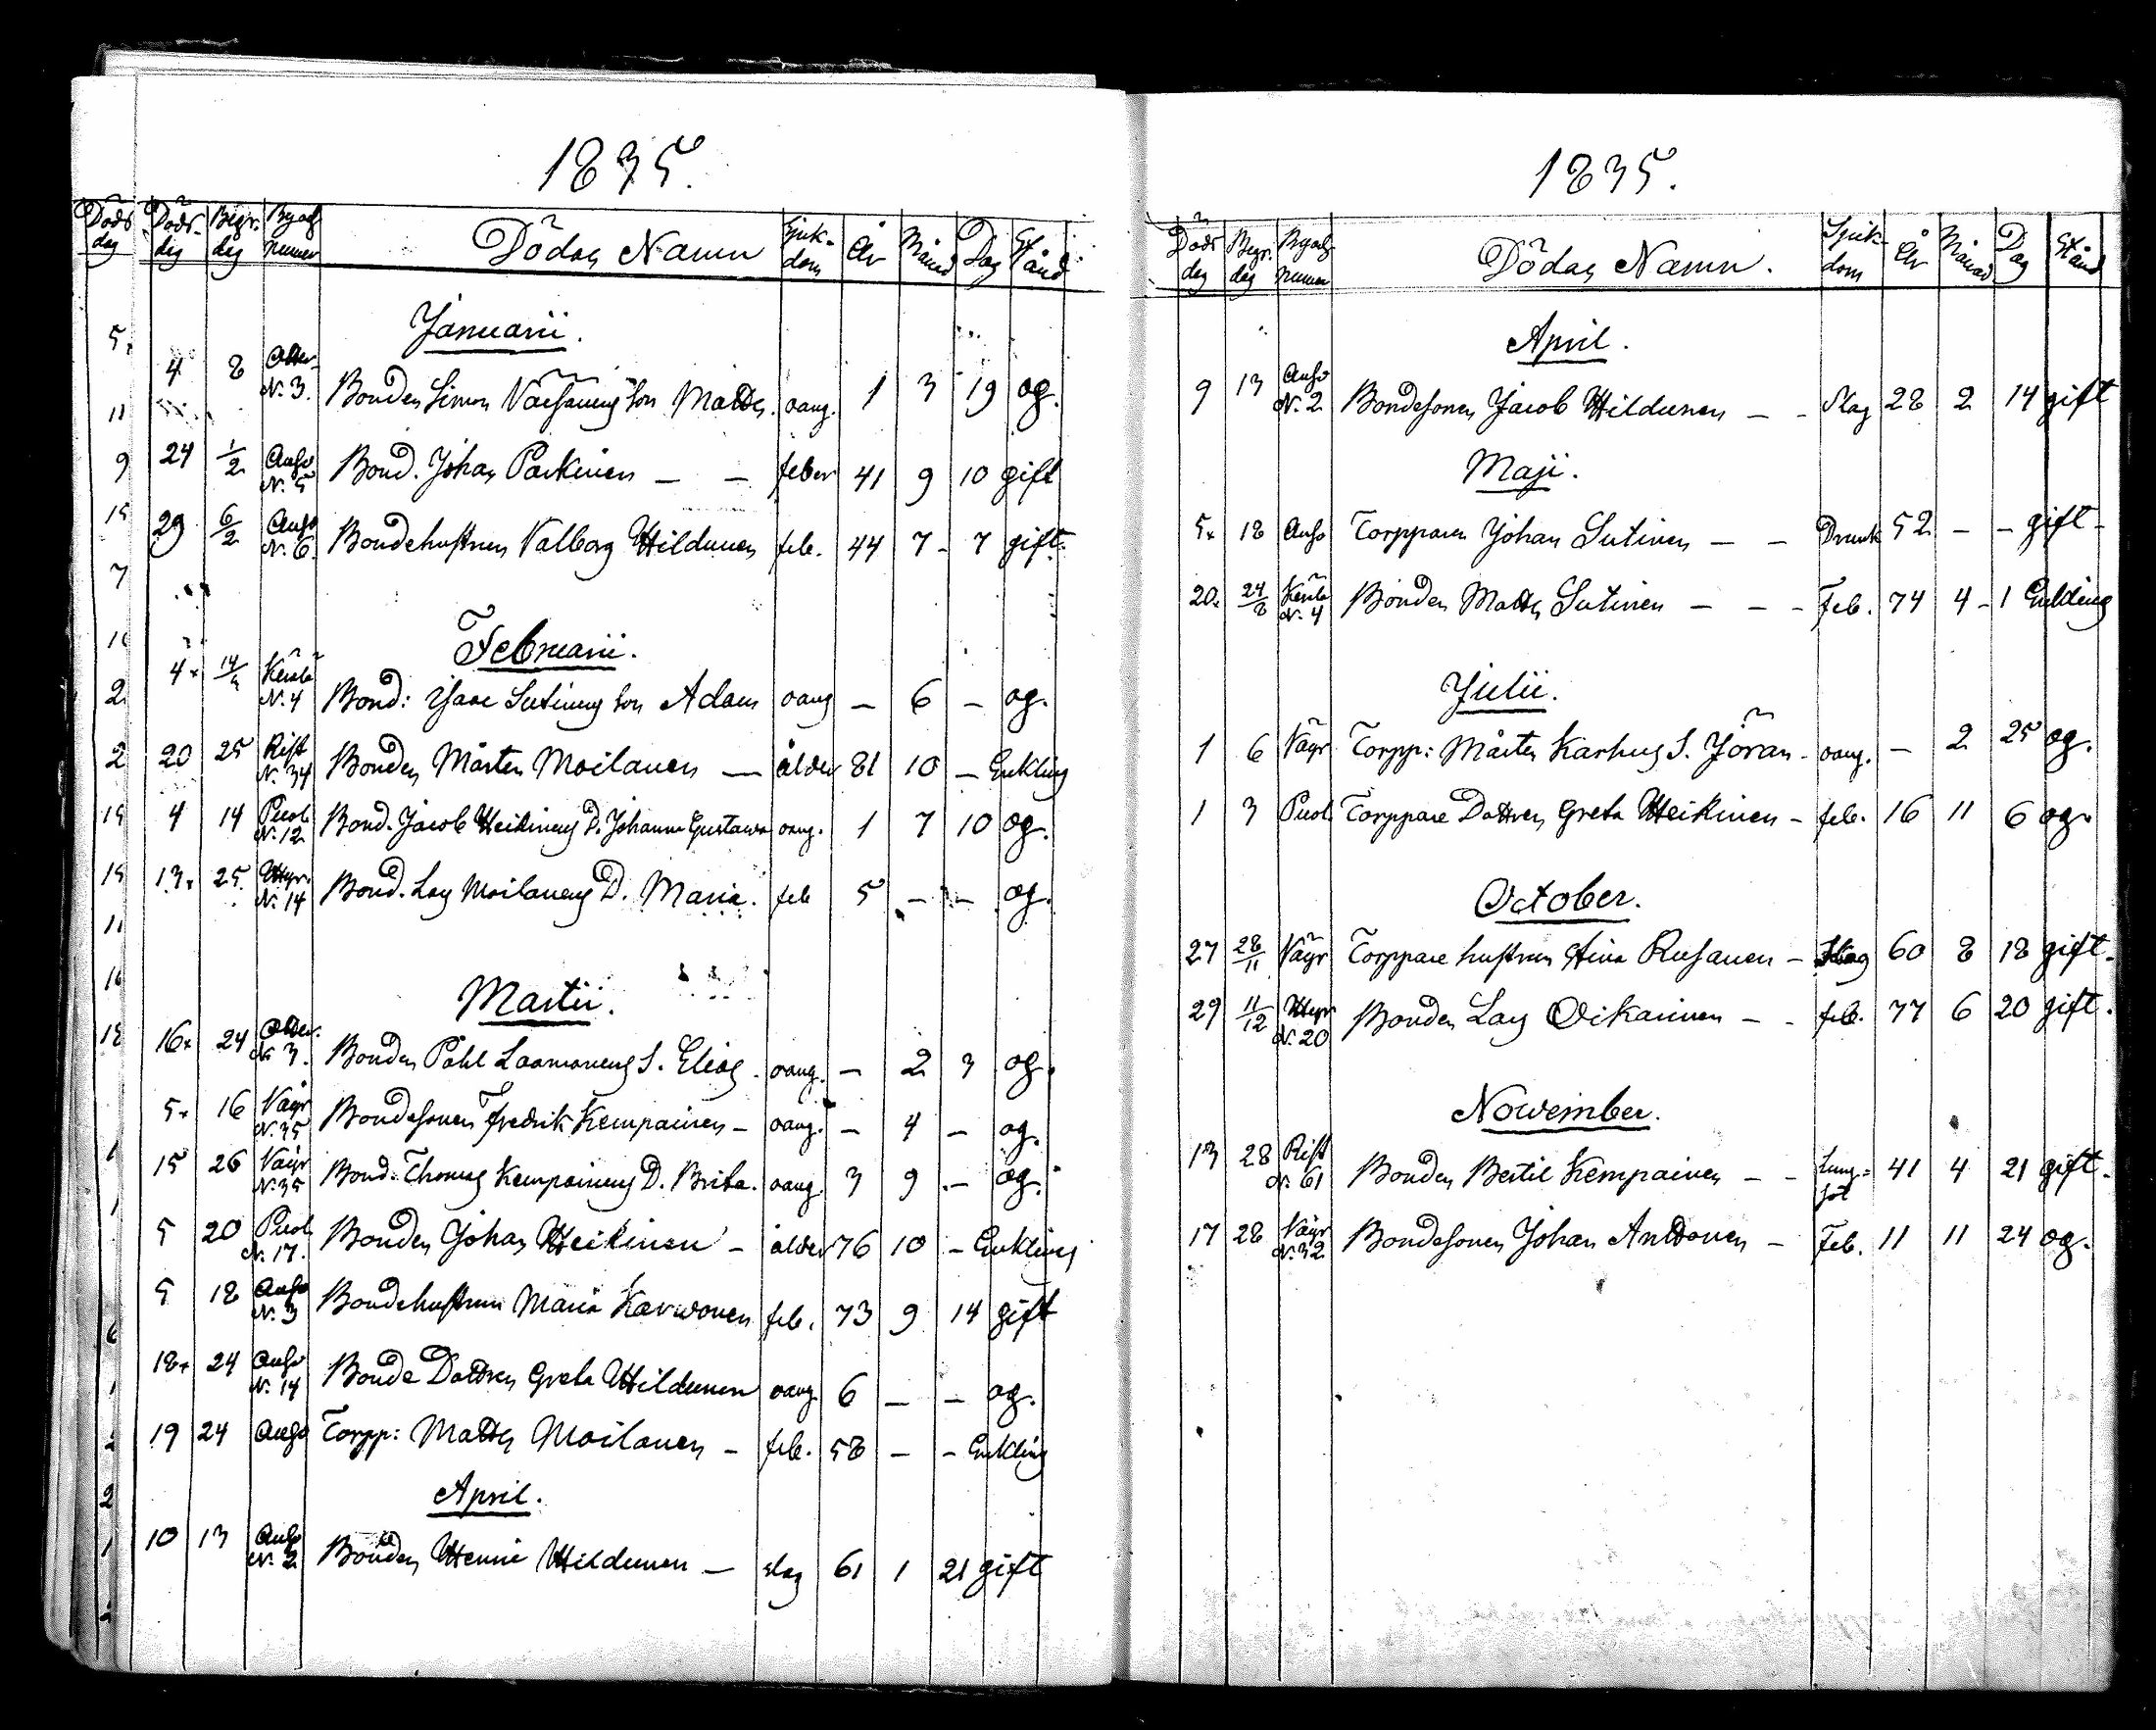 1835.
Döds dag Döds- dag Begr. dag Byns numer Dödas Namn Sjuk- dom År Månad Dag Stånd
Januarii.
4 8 N. 3. Bonden Simon Son Matts. oang. 1 3 19 og.
24 1/2 Anso N. 5 Bond. Johan Parkinen — — feber 41 9 10 gift
29 6/2 Anso N. 6. Bondehustrun Valborg Hildunen feb. 44 7 - 7 gift.
Februarii.
4 Kerälä N. 4 Bond: Isaac Sutinens Son Adam oang — 6 — og.
20 25 Rist N. 34 Bonden Mårten Moilanen — ålder 81 10 — Enkling
4 14 Puol N. 12 Bond. Jacob Heikinens D. Johanna Gustawa oang. 1 7 10 og.
13 25 Hyr. N. 14 Bond. Lars Moilanens D. Maria. feb 5 — — og.
Martii.
16 24 N. 3. Bonden Påhl Laamanens S. Elias. oang. — 2 3 og.
5 16 Väyr N. 35 Bondesonen Fredrik Kempainen — oang. — 4 — og.
15 26 Väyr N. 35 Bond. Thomas Kempainens D. Brita. oang. 3 9 — og.
5 20 Puol N. 17. Bonden Johan Heikinen — ålder 76 10 — Enkling
5 18 Anso N. 3 Bondehustrun Maria Karwonen feb. 73 9 14 gift
18 24 Anso N. 14 Bonde Dottren Greta Hildunen oang 6 — — og.
19 24 Anso Torpp: Matts Moilanen — feb. 58 — — Enkling
April.
10 13 Anso N. 2 Bonden Henric Hildunen — slag 61 1 21 gift
1835.
Döds dag Begr. dag Byns numer Dödas Namn. Sjuk- dom År Månad Dag Stånd
April.
9 13 Anso N. 2 Bondesonen Jacob Hildunen — - Slag 28 2 14 gift
Maji.
5 18 Anso Torpparen Johan Sutinen — — Drunk 52 — — gift
20 24/8 Kerälä N. 4 Bonden Matts Sutinen — — - Feb. 74 4 - 1 Enkling
Julii.
1 6 Väyr Torpp: Mårten Karhus S. Jöran - oang. — 2 25 og.
1 3 Puol Torppare Dottren Greta Heikinen - feb. 16 11 6 og.
October.
27 28/11 Väyr Torppare hustrun Rusanen — Slag 60 8 18 gift.
29 11/12 Hyr N. 20 Bonden Lars Oikarinen — - feb. 77 6 20 gift.
November.
13 28 Rist N. 61 Bonden Bertil Kempainen — - Lung= sot 41 4 21 gift.
17 28 Väyr N. 32 Bondesonen Johan Anttonen — Feb. 11 11 24 og.